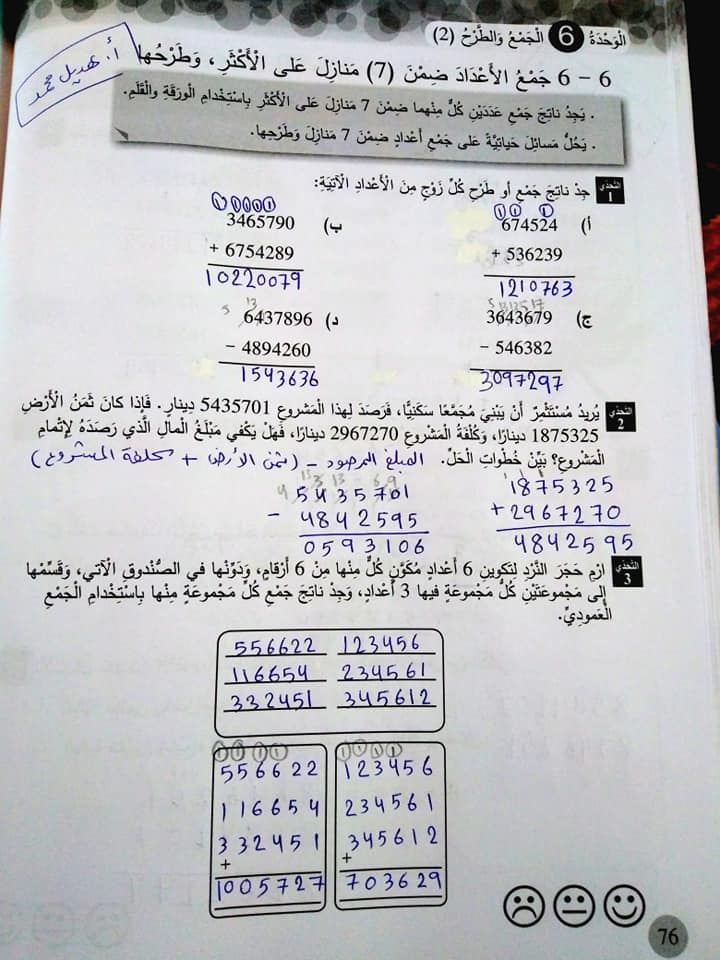 الْوَحْدَةُ 6 الْجَمْعُ وَالطَّرْحُ (2)
أ. هديل محمد
6 – 6 جَمْعُ الْأَعْدَادَ ضِمْنَ (7) مَنازِلَ عَلى الْأَكْثَرِ، وَطَرْحُها
. يَجِدُ ناتِجَ جَمْعِ عَدَدَيْنِ كُلٌّ مِنْهما ضِمْنَ 7 مَنازِلَ عَلى الْأَكْثَرِ بِاسْتِخْدامِ الْوَرَقَةِ وَالْقَلَمِ.
. يَحُلُّ مَسائِلَ حَياتِيَّةً عَلى جَمْعِ أَعْدادٍ ضِمْنَ 7 مَنازِلَ وَطَرْحِها.
التَّحَدّي 1 جِدْ ناتِجَ جَمْعِ أَو طَرْحِ كُلِّ زَوْجٍ مِنَ الْأَعْدادِ الْآتِيَةِ:
1 1 1
أ) 674524
+ 536239
1210763
1 1 1 1 1
ب) 3465790
+ 6754289
10220079
5 13 15 17
ج) 3643679
– 546382
3097297
5 13
د) 6437896
– 4894260
1543636
التَّحَدّي 2 يُريدُ مُسْتَثْمِرٌ أَنْ يَبْنِيَ مُجَمَّعًا سَكَنِيًّا، فَرَصَدَ لِهذا الْمَشروعِ 5435701 دِينارٍ. فَإِذا كانَ ثَمَنُ الْأَرْضِ
1875325 دينارًا، وَكُلْفَةُ الْمَشْروعِ 2967270 دينارًا، فَهَلْ يَكْفي مَبْلَغُ الْمالِ الَّذي رَصَدَهُ لِإِتْمامِ
الْمَشْروعِ؟ بَيِّنْ خُطُواتِ الْحَلِّ. المبلغ المرصود – (ثمن الأرض + تكلفة المشروع)
1875325
+ 2967270
4842595
5435701
– 4842595
0593106
التَّحَدّي 3 ارْمِ حَجَرَ النَّرْدِ لِتَكْوينِ 6 أَعْدادٍ مُكَوَّنٍ كُلٌّ مِنْها مِنْ 6 أَرْقامٍ، وَدَوِّنْها في الصُّنْدوقِ الْآتي، وَقَسِّمْها
إِلى مَجْموعَتَيْنِ كُلُّ مَجْموعَةٍ فيها 3 أَعْدادٍ، وَجِدْ ناتِجَ جَمْعِ كُلِّ مَجْموعَةٍ مِنْها بِاسْتِخْدامِ الْجَمْعِ
الْعَمودِيِّ.
556622 123456
116654 234561
332451 345612
1 1 1 1
123456
234561
345612
+
703629
1 1 1 1
556622
116654
332451
+
1005727
76